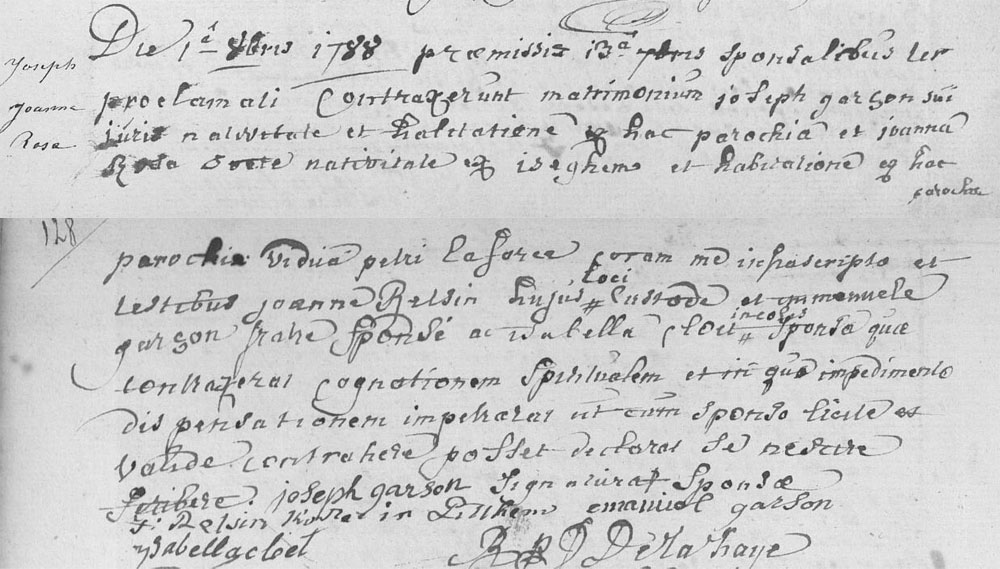 Die 1ª 8bris 1788 præmissis 13ª 7bris sponsalibus ter
Joseph
proclamati contraxerunt matrimonium joseph garson sui
Joanne
juris nativitate et habitatione ex hac parochia et joanna
Rosa
Rosa nativitate ex iseghem et habitatione ex hac
parochia
128
parochia vidua petri laforce coram me infrascripto et
testibus joanne Relsin hujus loci Custode et emmanuele
garson fratre sponsi ac isabella incolis sponsa quæ
contraxerat cognationem spiritualem et in quo impedimento
dispensationem impetrarat ut cum sponso licite et
valide contrahere posset declarat se nescire
scribere. joseph garson signatura sponsæ
j: Relsin in emanuel garson
ysabell
Delahaye